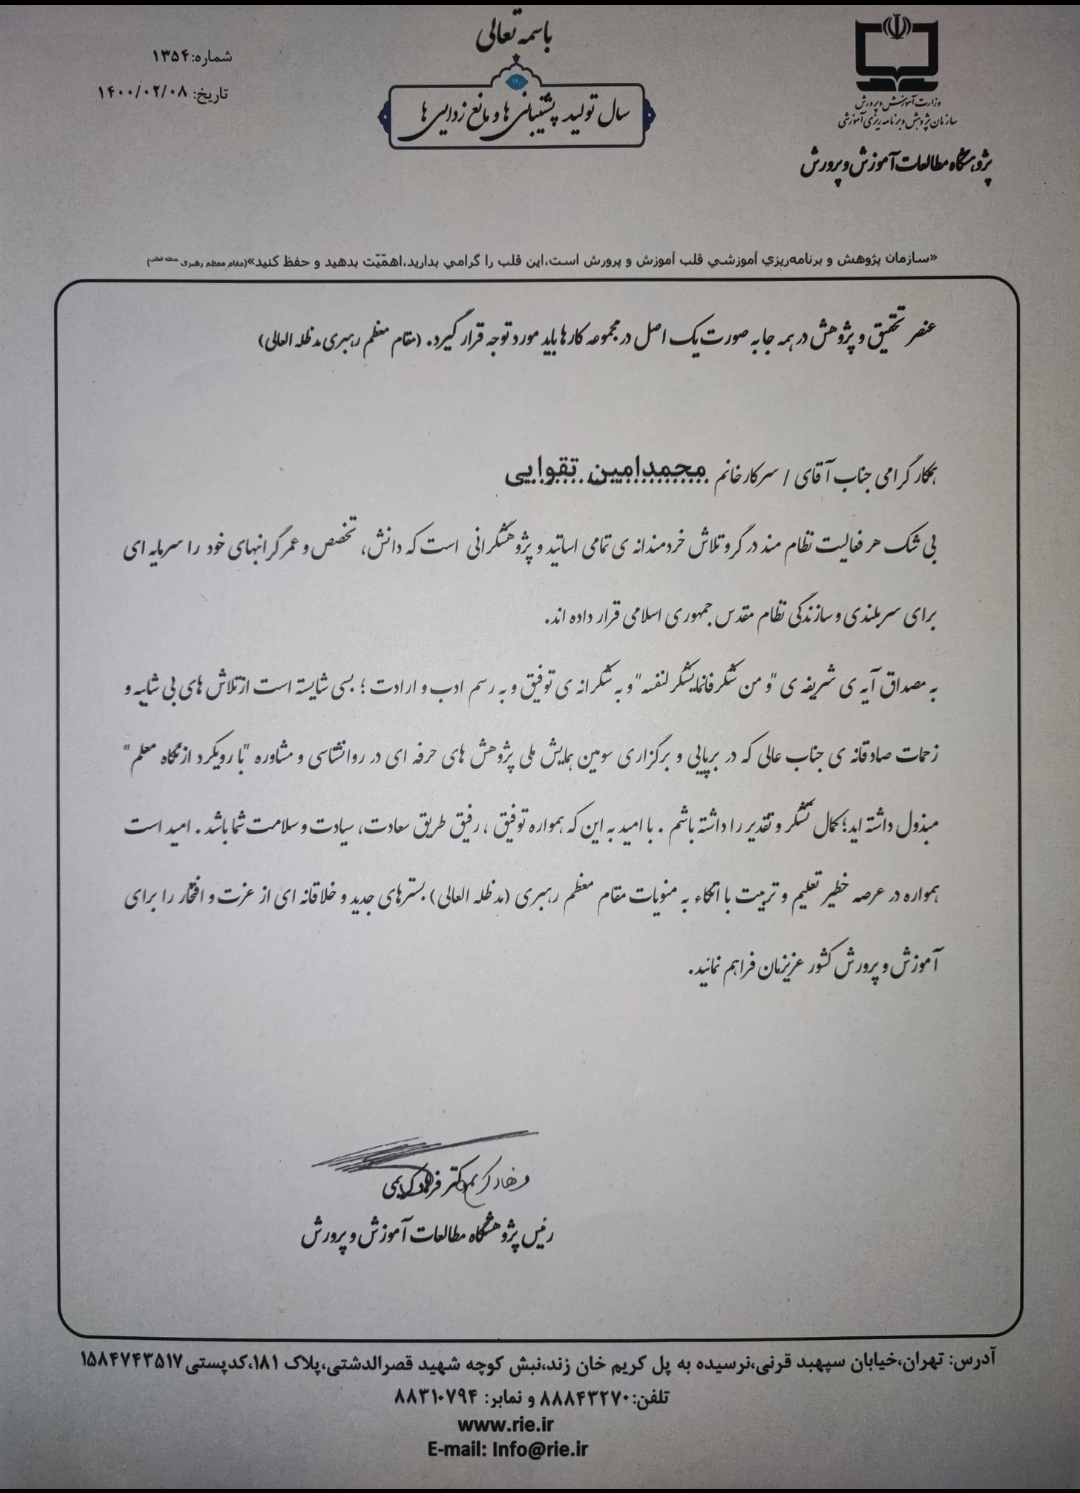 باسمه تعالی
شماره: ۱۳۵۴
تاریخ: ۱۴۰۰/۰۲/۰۸
سال تولید، پشتیبانی ها و مانع زدایی ها
وزارت آموزش و پرورش
سازمان پژوهش و برنامه ریزی آموزشی
پژوهشگاه مطالعات آموزش و پرورش
«سازمان پژوهش و برنامه‌ریزي آموزشي قلب آموزش و پرورش است،این قلب را گرامي بدارید،اهمّیّت بدهید و حفظ کنید»(مقام معظم رهبری
عنصر تحقیق و پژوهش در همه جا به صورت یک اصل در مجموعه کارها باید مورد توجه قرار گیرد. (مقام معظم رهبری مدظله العالی)
همکار گرامی جناب آقای / سرکار خانم محمدامین تقوایی
بی شک هر فعالیت نظام مند در گرو تلاش خردمندانه ی تمامی اساتید و پژوهشگرانی است که دانش، تخصص و عمر گرانبهای خود را سرمایه ای
برای سربلندی و سازندگی نظام مقدس جمهوری اسلامی قرار داده اند.
به مصداق آیه ی شریفه ی "و من شکر فانما یشکر لنفسه" و به شکرانه ی توفیق و به رسم ادب و ارادت ؛ بسی شایسته است از تلاش های بی شایبه و
زحمات صادقانه ی جناب عالی که در برپایی و برگزاری سومین همایش ملی پژوهش های حرفه ای در روانشناسی و مشاوره "با رویکرد از نگاه معلم"
مبذول داشته اید؛ کمال تشکر و تقدیر را داشته باشم . با امید به این که همواره توفیق ، رفیق طریق سعادت، سیادت و سلامت شما باشد . امید است
همواره در عرصه خطیر تعلیم و تربیت با اتکاء به منویات مقام معظم رهبری (مدظله العالی) بسترهای جدید و خلاقانه ای از عزت و افتخار را برای
آموزش و پرورش کشور عزیزمان فراهم نمائید.
دکتر فرهاد کریمی
رئیس پژوهشگاه مطالعات آموزش و پرورش
آدرس: تهران،خیابان سپهبد قرنی،نرسیده به پل کریم خان زند،نبش کوچه شهید قصرالدشتی،پلاک ۱۸۱،کدپستی ۱۵۸۴۷۴۳۵۱۷
تلفن:۸۸۸۴۳۲۷۰ و نمابر: ۸۸۳۱۰۷۹۴
www.rie.ir
E-mail: Info@rie.ir